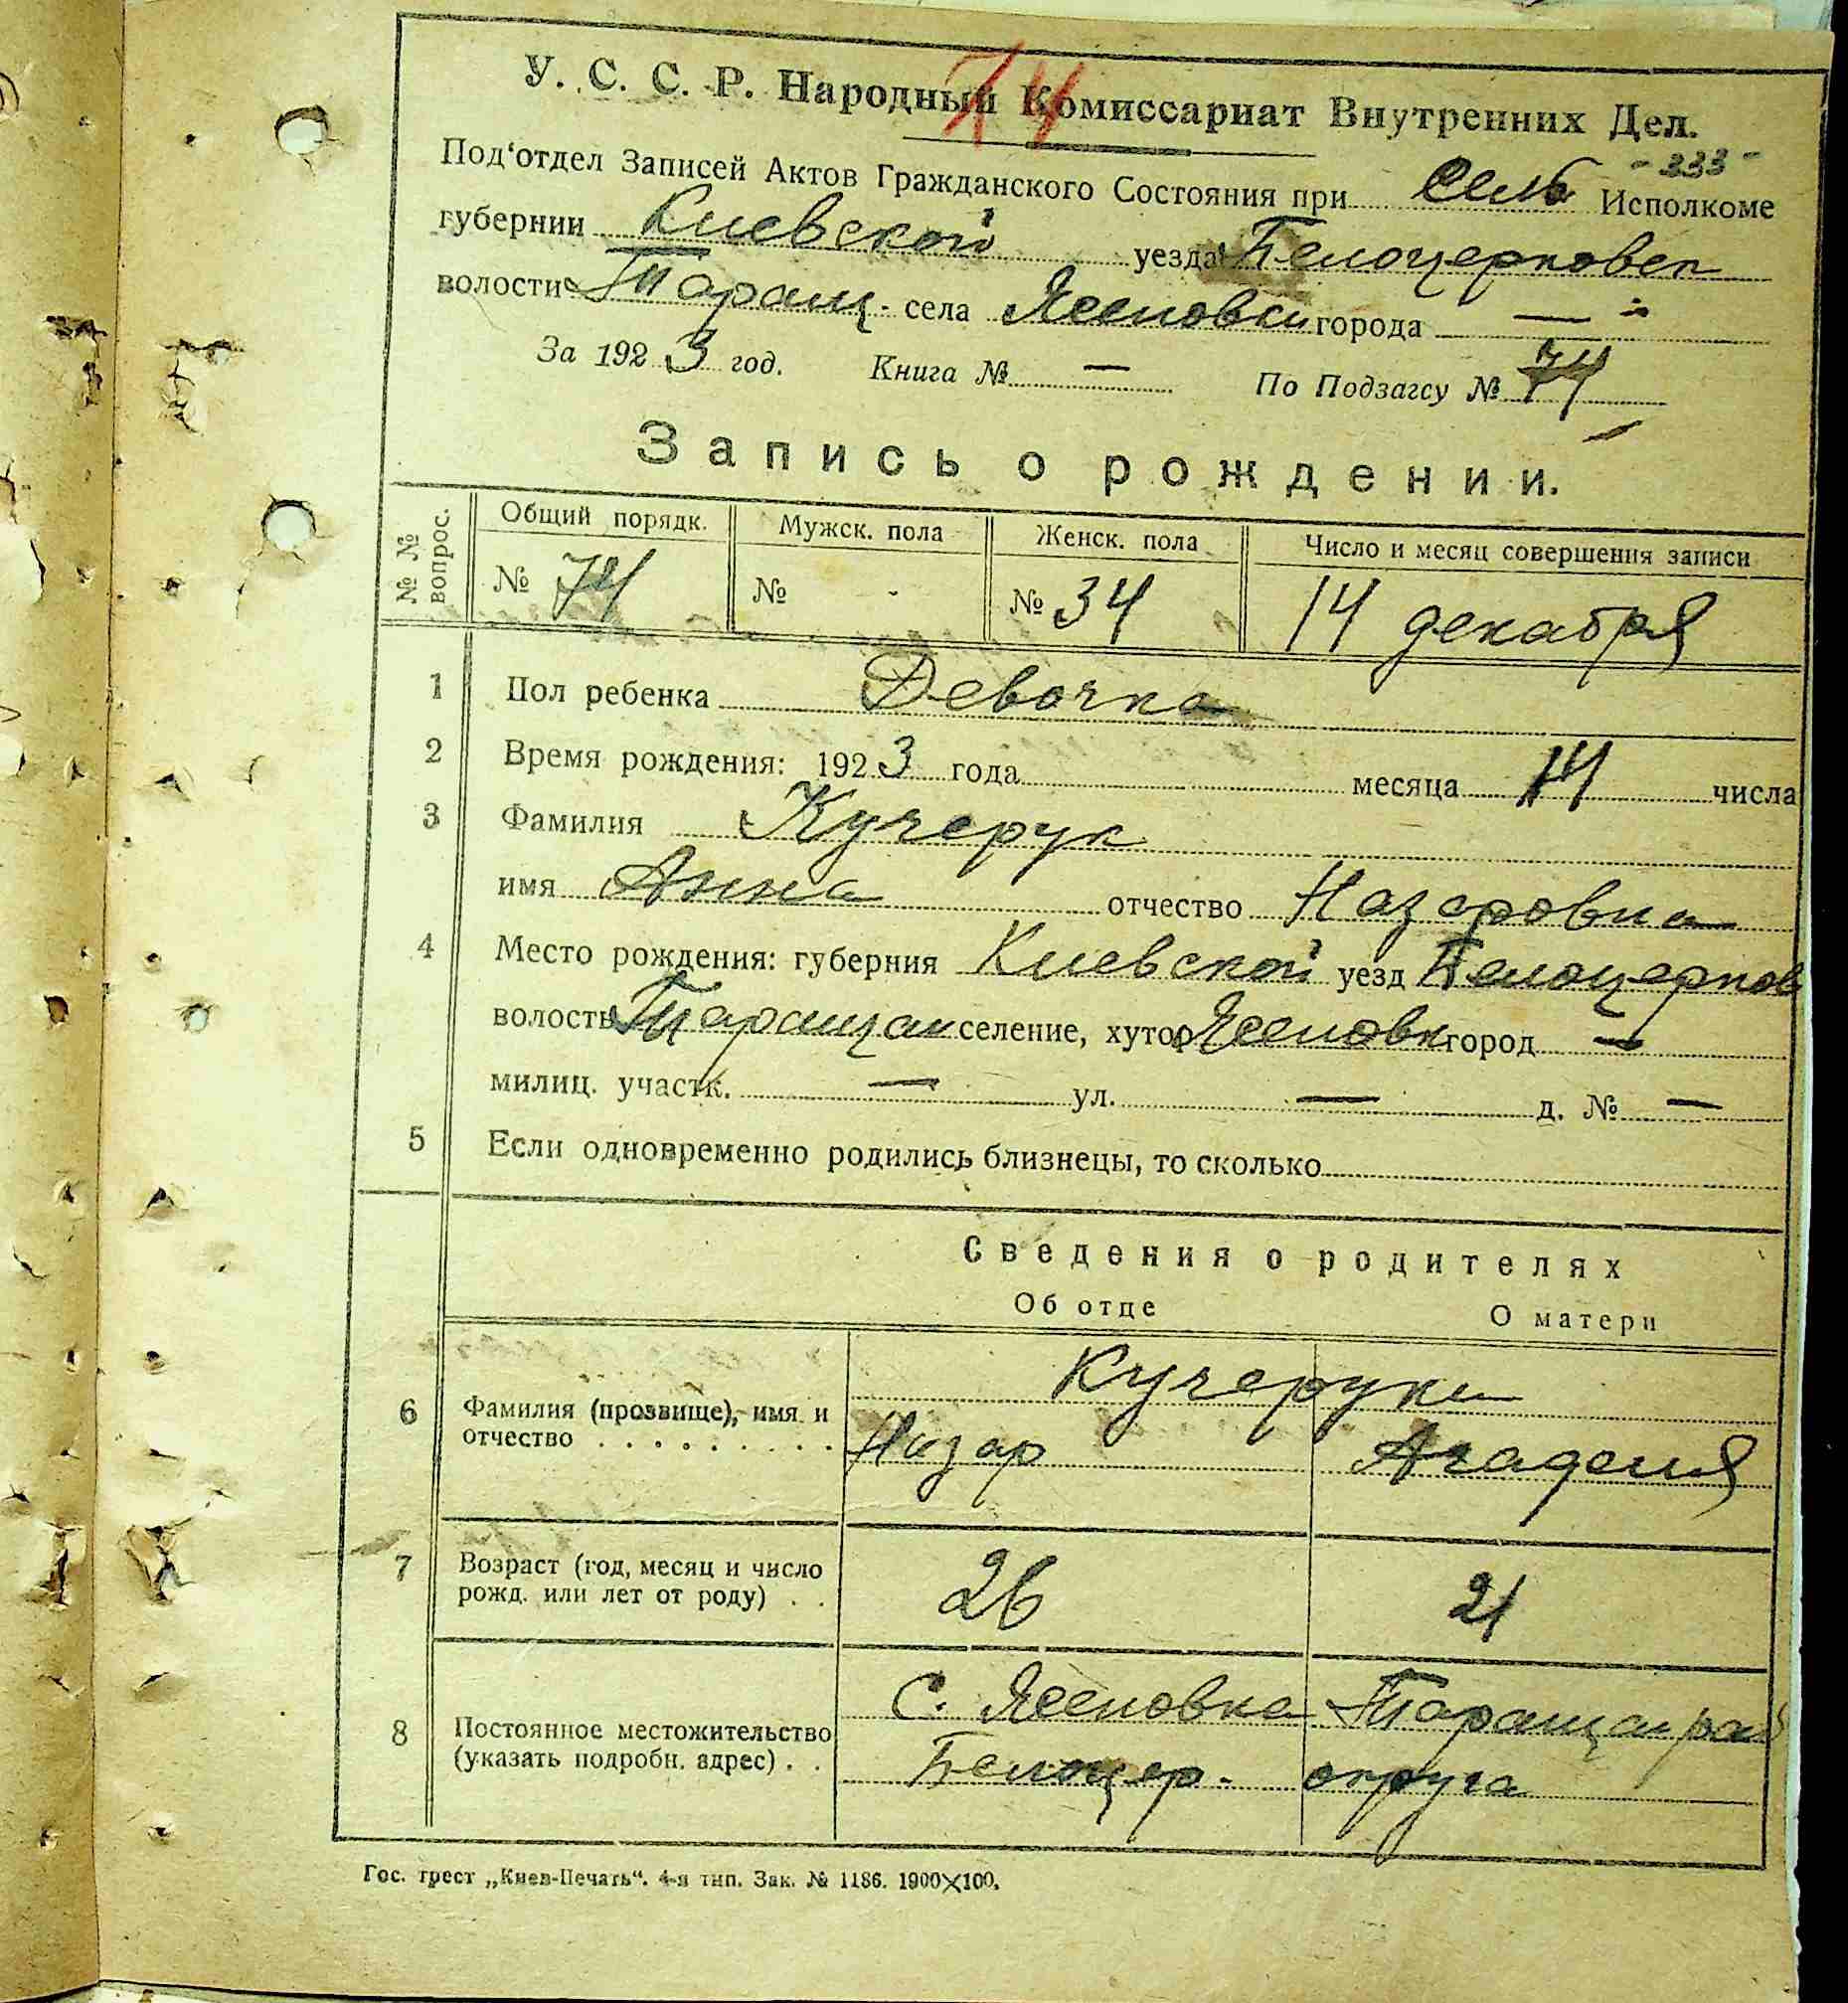 74
У. С. С. Р. Народный Комиссариат Внутренних Дел.
- 333 -
Под‘отдел Записей Актов Гражданского Состояния при Сель Исполкоме
губернии Киевской уезда Белоцерковск
волости Таращ. села Ясеновки города —
За 1923 год. Книга № — По Подзагсу № 74
Запись о рождении.
№ № вопрос. Общий порядк. Мужск. пола Женск. пола Число и месяц совершения записи
№ 74 № - № 34 14 декабря
1 Пол ребенка Девочка
2 Время рождения: 1923 года месяца 14 числа
3 Фамилия Кучерук
имя Анна отчество Назаровна
4 Место рождения: губерния Киевской уезд Белоцерков
волость Таращан селение, хутор Ясеновк город —
милиц. участк. — ул. — д. № —
5 Если одновременно родились близнецы, то сколько
Сведения о родителях
Об отце О матери
Кучеруки
6 Фамилия (прозвище), имя и
отчество . . . . . . . . . Назар Агадения
7 Возраст (год, месяц и число
рожд. или лет от роду) . . 26 21
С. Ясеновка Таращан рай
8 Постоянное местожительство
(указать подробн. адрес) . . Белоцер. округа
Гос. трест „Киев-Печать“. 4-я тип. Зак. № 1186. 1900×100.